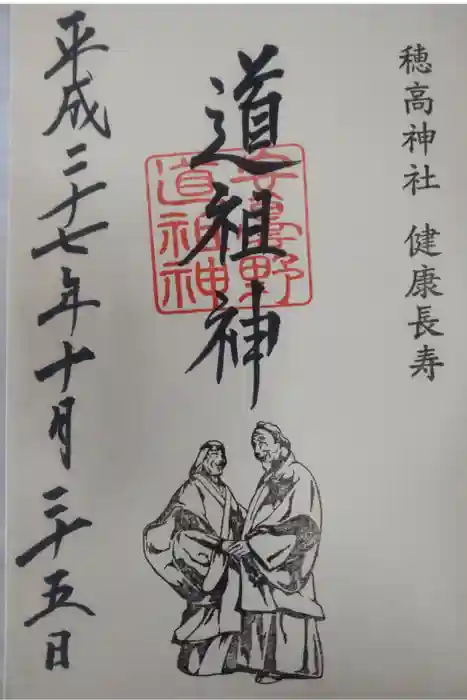 穂高神社 健康長寿
道祖神
安曇野
道祖神
平成二十七年十月二十五日